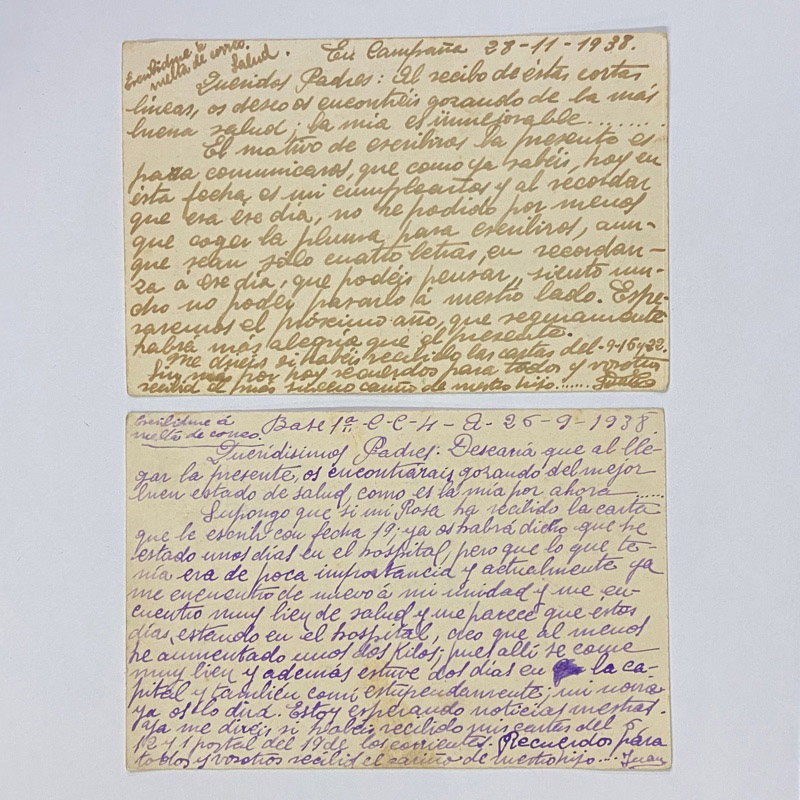 Escribidme a
vuelta de correo.
Salud.
En Campaña 28-11-1938.
Queridos Padres: Al recibo de éstas cortas
líneas, os deseo os encontréis gozando de la más
buena salud; la mía es inmejorable........
El motivo de escribiros la presente es
para comunicaros, que como ya sabéis, hoy en
ésta fecha, es mi cumpleaños y al recordar
que era ése día, no he podido por menos
que coger la pluma para escribiros, aun-
que sean sólo cuatro letras, en recordan-
za á ése día, que podéis pensar, siento mu-
cho no poder pasarlo á vuestro lado. Espe-
raremos el próximo año, que seguramente
habrá más alegría que el presente.
Me diréis si habéis recibido las cartas del 9-16 y 22.
Sin más por hoy recuerdos para todos y vosotros
recibid el más sincero cariño de vuestro hijo......
Escribidme á
vuelta de correo.
Base 1ª C-C-4-A-26-9-1938.
Queridísimos Padres: Desearía que al lle-
gar la presente, os encontrarais gozando del mejor
buen estado de salud, como es la mía por ahora......
Supongo que si mi Rosa ha recibido la carta
que le escribí con fecha 19, ya os habrá dicho que he
estado unos días en el hospital, pero que lo que te-
nía era de poca importancia y actualmente ya
me encuentro de nuevo á mi unidad y me en-
cuentro muy bien de salud y me parece que estos
días, estando en el hospital, creo que al menos
he aumentado unos dos kilos; pues allí se come
muy bien y además estuve dos días en la ca-
pital y también comí estupendamente; mi novia
ya os lo dirá. Estoy esperando noticias vuestras.
Ya me diréis si habéis recibido mis cartas del 5
12 y 1 postal del 19 de los corrientes. Recuerdos para
todos y vosotros recibid el cariño de vuestro hijo.... Juan